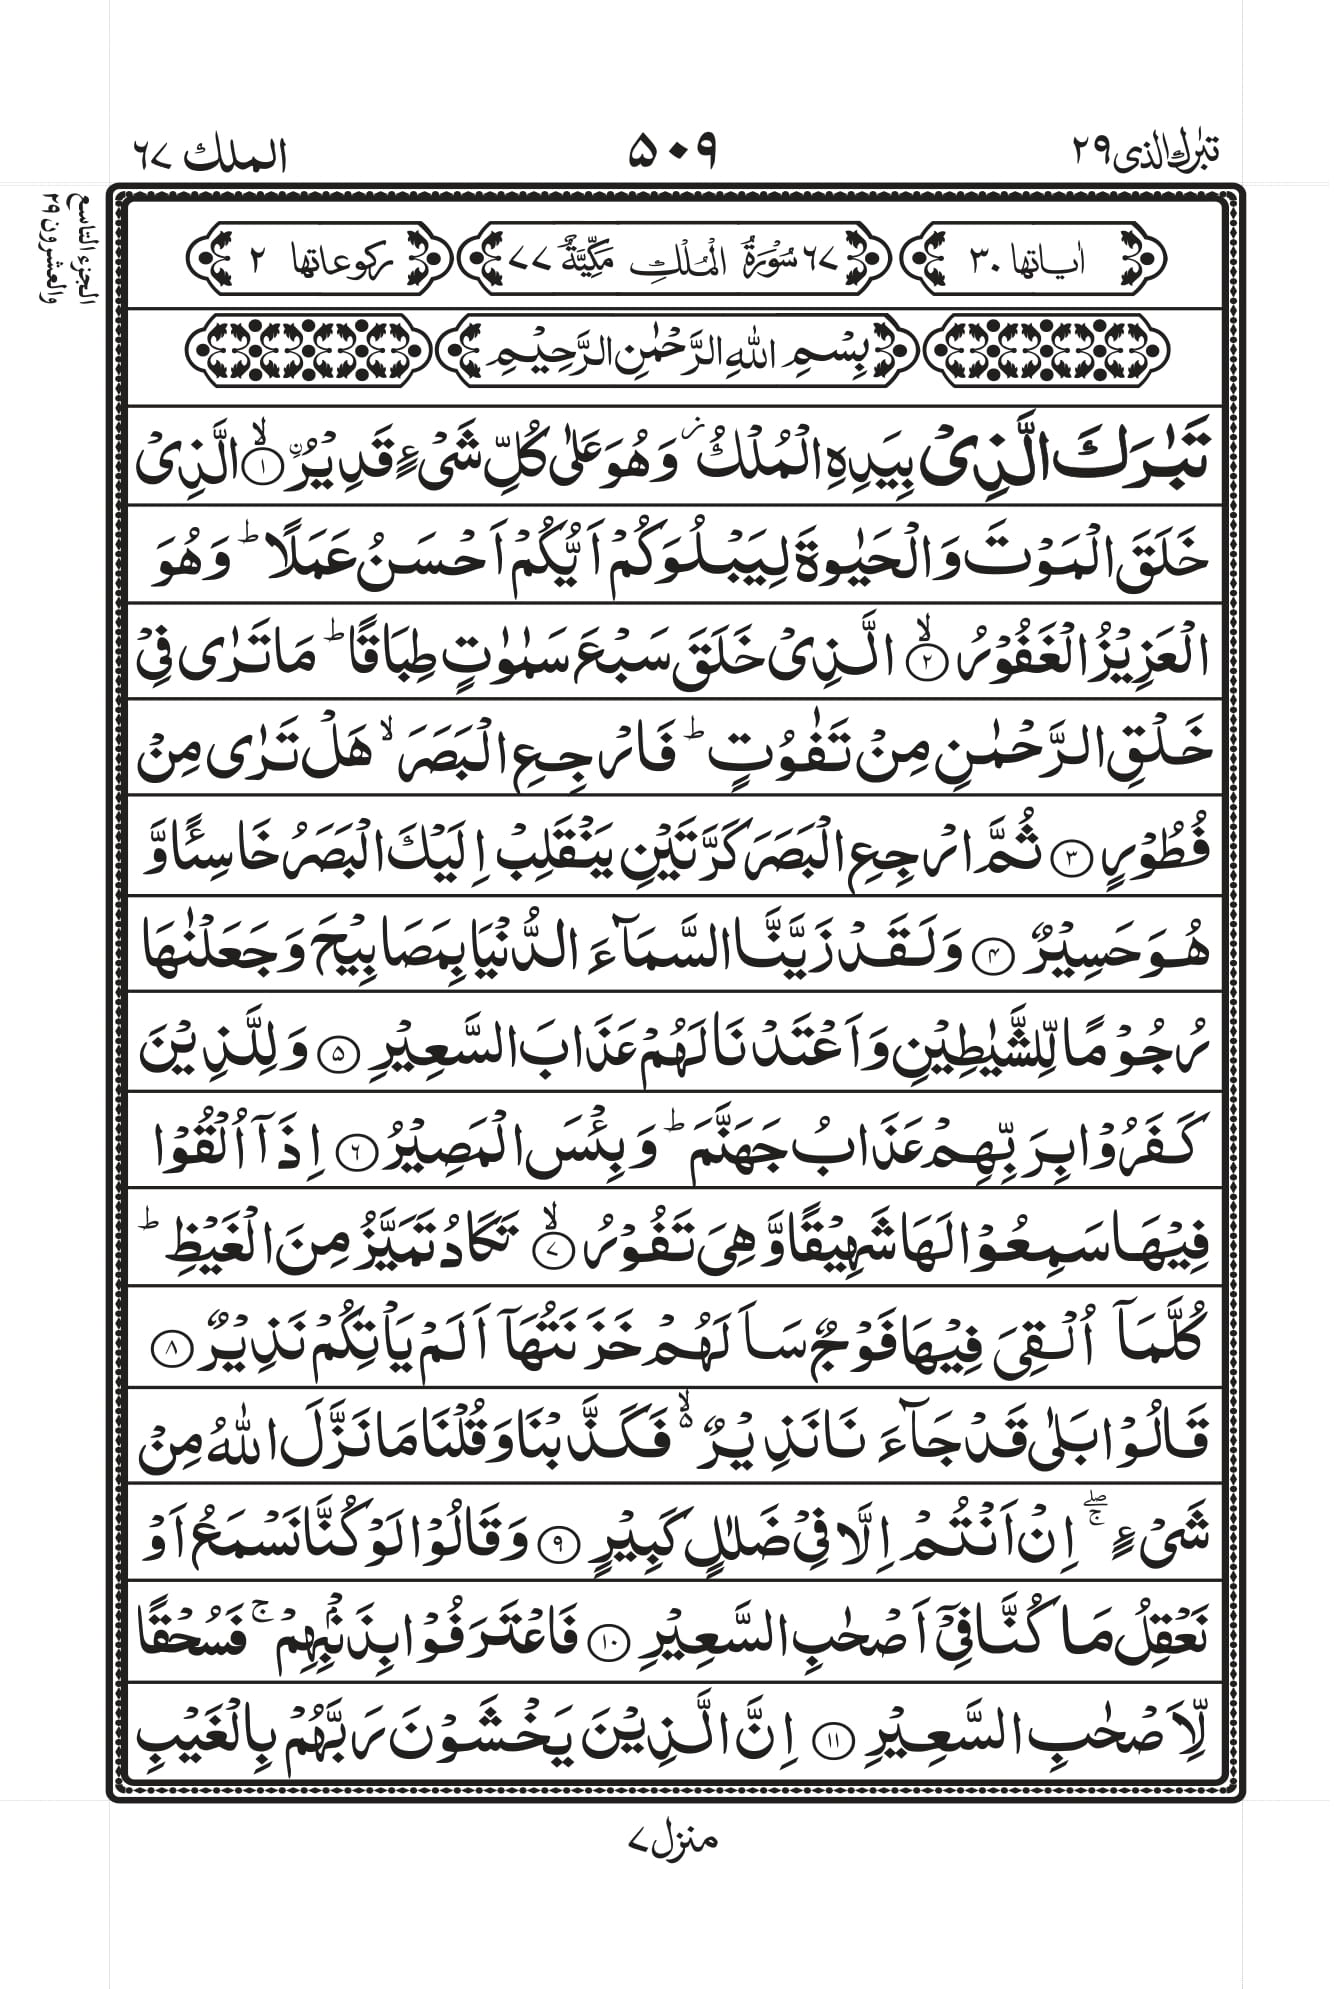 تبٰرك الذی ٢٩ ۵۰۹ الملك ٦٧
الجزء التاسع
والعشرون ٢٩
اٰیاتها ٣٠ ٦٧ سُوْرَةُ الْمُلْكِ مَكِّیَّةٌ ٧٧ ركوعاتها ٢
بِسْمِ اللهِ الرَّحْمٰنِ الرَّحِیْمِ
تَبٰرَكَ الَّذِیْ بِیَدِهِ الْمُلْكُ ؗ وَ هُوَ عَلٰی كُلِّ شَیْءٍ قَدِیْرُ ۨۙ ﴿۱﴾ الَّذِیْ
خَلَقَ الْمَوْتَ وَ الْحَیٰوةَ لِیَبْلُوَكُمْ اَیُّكُمْ اَحْسَنُ عَمَلًا ؕ وَ هُوَ
الْعَزِیْزُ الْغَفُوْرُ ۙ ﴿۲﴾ الَّذِیْ خَلَقَ سَبْعَ سَمٰوٰتٍ طِبَاقًا ؕ مَا تَرٰی فِیْ
خَلْقِ الرَّحْمٰنِ مِنْ تَفٰوُتٍ ؕ فَارْجِعِ الْبَصَرَ ۙ هَلْ تَرٰی مِنْ
فُطُوْرٍ ﴿۳﴾ ثُمَّ ارْجِعِ الْبَصَرَ كَرَّتَیْنِ یَنْقَلِبْ اِلَیْكَ الْبَصَرُ خَاسِئًا وَّ
هُوَ حَسِیْرٌ ﴿۴﴾ وَ لَقَدْ زَیَّنَّا السَّمَآءَ الدُّنْیَا بِمَصَابِیْحَ وَ جَعَلْنٰهَا
رُجُوْمًا لِّلشَّیٰطِیْنِ وَ اَعْتَدْنَا لَهُمْ عَذَابَ السَّعِیْرِ ﴿۵﴾ وَ لِلَّذِیْنَ
كَفَرُوْا بِرَبِّهِمْ عَذَابُ جَهَنَّمَ ؕ وَ بِئْسَ الْمَصِیْرُ ﴿۶﴾ اِذَاۤ اُلْقُوْا
فِیْهَا سَمِعُوْا لَهَا شَهِیْقًا وَّ هِیَ تَفُوْرُ ۙ ﴿۷﴾ تَكَادُ تَمَیَّزُ مِنَ الْغَیْظِ ؕ
كُلَّمَاۤ اُلْقِیَ فِیْهَا فَوْجٌ سَاَلَهُمْ خَزَنَتُهَاۤ اَلَمْ یَاْتِكُمْ نَذِیْرٌ ﴿۸﴾
قَالُوْا بَلٰی قَدْ جَآءَنَا نَذِیْرٌ ۬ۙ فَكَذَّبْنَا وَ قُلْنَا مَا نَزَّلَ اللهُ مِنْ
شَیْءٍ ۚۖ اِنْ اَنْتُمْ اِلَّا فِیْ ضَلٰلٍ كَبِیْرٍ ﴿۹﴾ وَ قَالُوْا لَوْ كُنَّا نَسْمَعُ اَوْ
نَعْقِلُ مَا كُنَّا فِیْۤ اَصْحٰبِ السَّعِیْرِ ﴿۱۰﴾ فَاعْتَرَفُوْا بِذَنْۢبِهِمْ ۚ فَسُحْقًا
لِّاَصْحٰبِ السَّعِیْرِ ﴿۱۱﴾ اِنَّ الَّذِیْنَ یَخْشَوْنَ رَبَّهُمْ بِالْغَیْبِ
منزل ٧